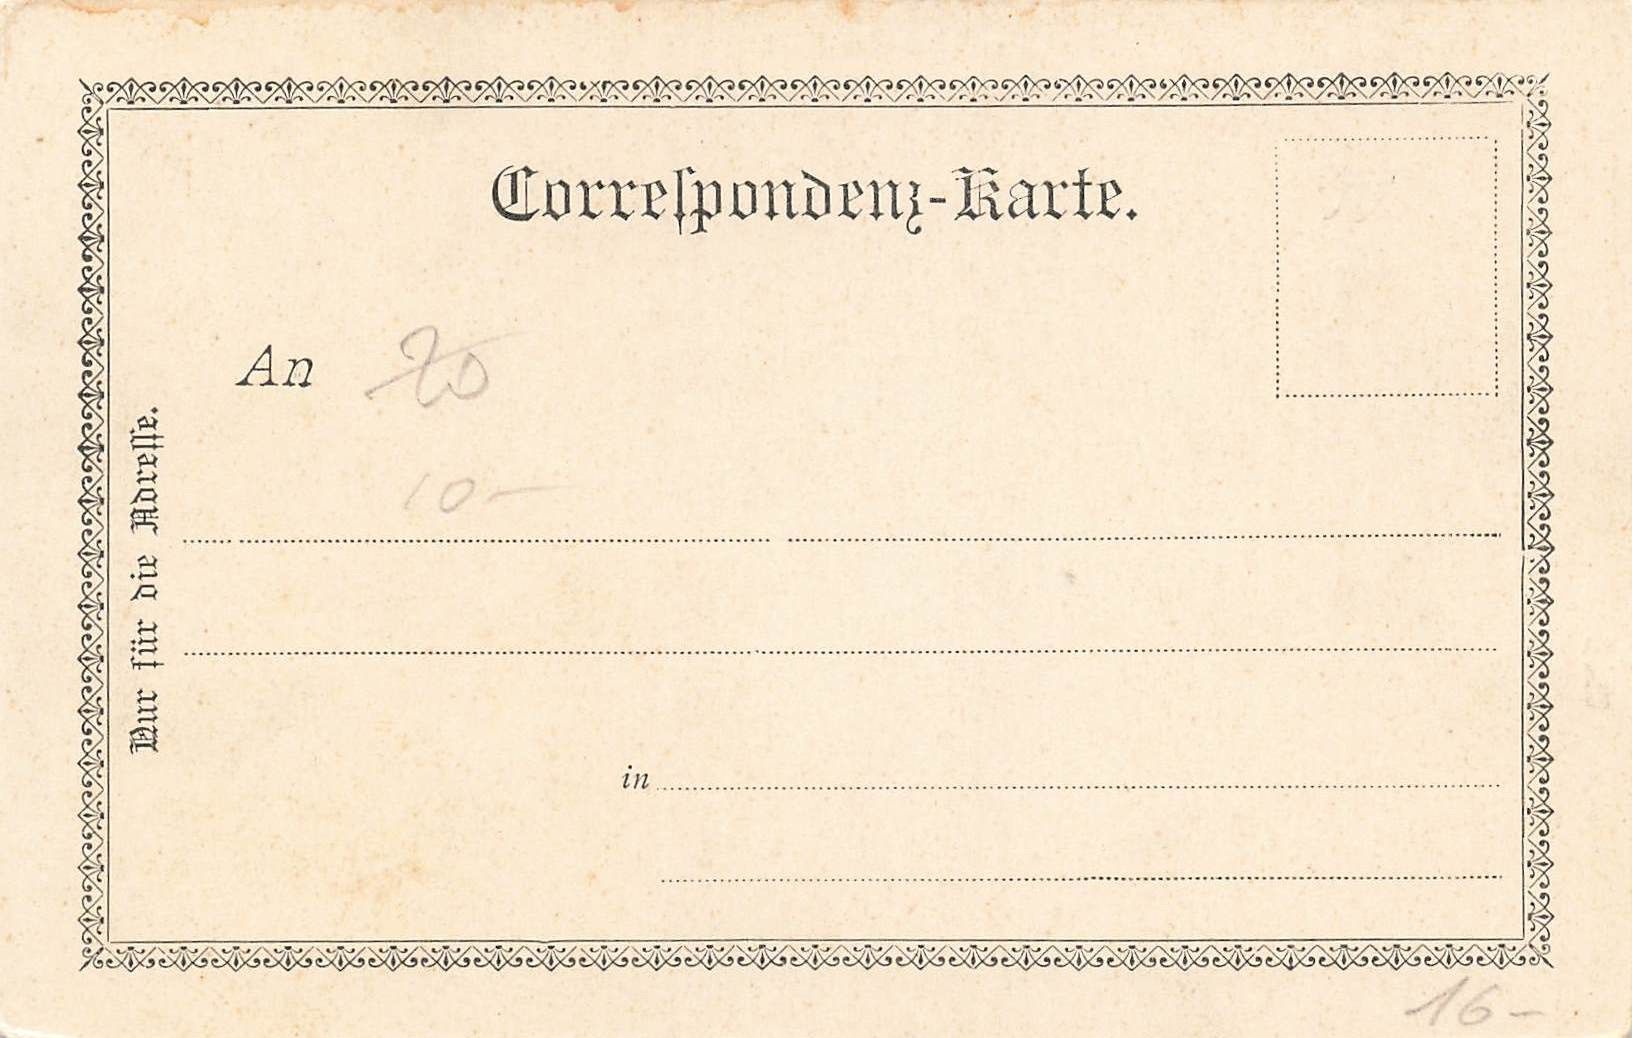 Correſpondenz-Karte.
An 20
10-
Nur für die Adreſſe.
in
16-